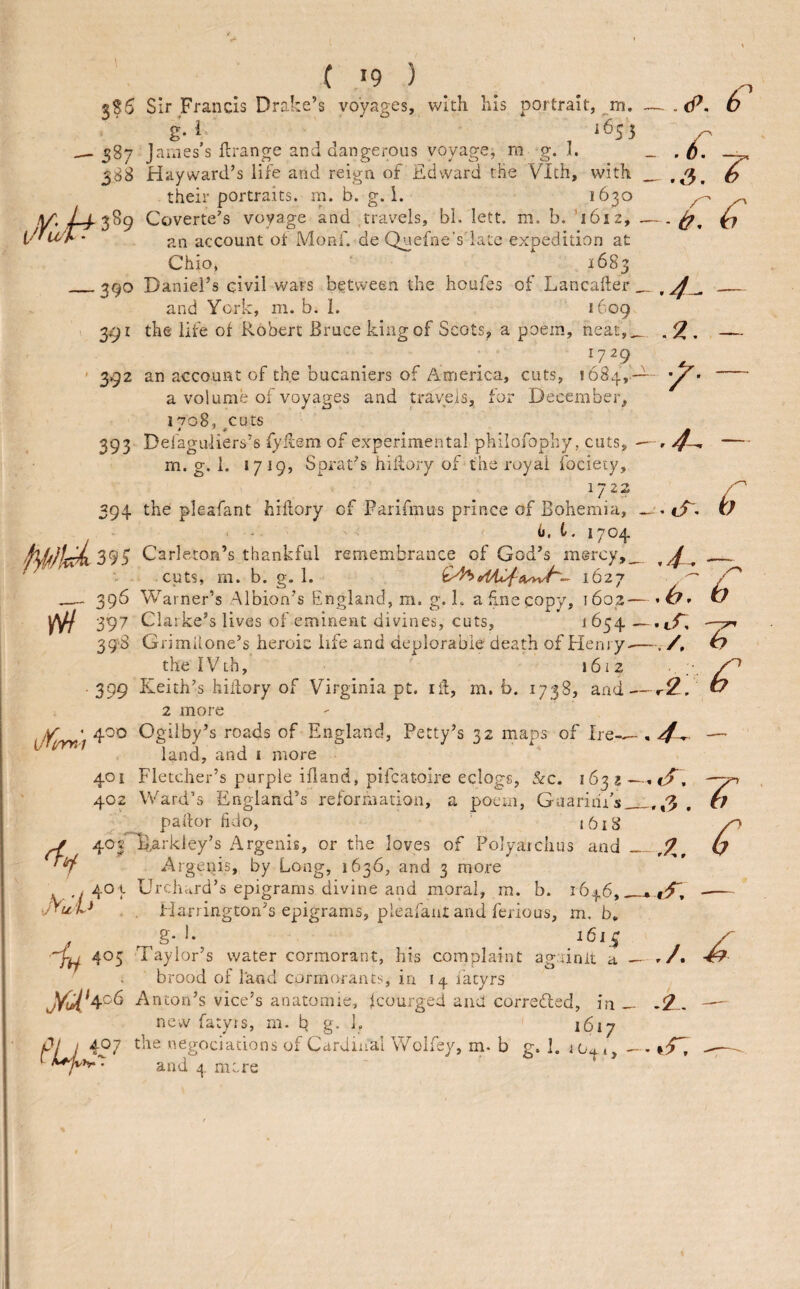 ( 19 )
386 Sir Francis Drake's voyages, with his portrait, m. — . 8. 6
g. l. 1653
— 387 James's ſtrange and dangerous voyage, m g. l. — . 6. —
388 Hayward's life and reign of Edward the VIth, with — . 3. 6
their portraits. m. b. g. l. 1630
389 Coverte's voyage and travels, bl. lett. m. b. 1612, — . 6. 6
an account of Monſ. de Queſne's late expedition at
Chio, 1683
— 390 Daniel's civil wars between the houſes of Lancaſter — . 4 —
and York, m. b. l. 1609
391 the life of Robert Bruce king of Scots, a poem, neat, — . 2. —
1729
392 an account of the bucaniers of America, cuts, 1684, — . 7. —
a volume of voyages and travels, for December,
1708, cuts
393 Deſaguliers's ſyſtem of experimental philoſophy, cuts, — . 4 —
m. g. l. 1719, Sprat's hiſtory of the royal ſociety,
1722
394 the pleaſant hiſtory of Pariſmus prince of Bohemia, — . 5. 6
b. l. 1704
395 Carleton's thankful remembrance of God's mercy, — . 4. —
cuts, m. b. g. l. 1627
— 396 Warner's Albion's England, m. g. l. a fine copy, 1602 — . 6. 6
397 Clarke's lives of eminent divines, cuts, 1654 — . 5. —
398 Grimſtone's heroic life and deplorable death of Henry — . 1. 6
the IVth, 1612
399 Keith's hiſtory of Virginia pt. 1ſt, m. b. 1738, and — . 2. 6
2 more
400 Ogilby's roads of England, Petty's 32 maps of Ire- — . 4 —
land, and 1 more
401 Fletcher's purple iſland, piſcatoire eclogs, &c. 1632 — . 5. —
402 Ward's England's reformation, a poem, Guarini's — . 3. 6
paſtor fido, 1618
403 Barkley's Argenis, or the loves of Polyarchus and — . 2. 6
Argenis, by Long, 1636, and 3 more
404 Urchard's epigrams divine and moral, m. b. 1646, — . 5. —
Harrington's epigrams, pleaſant and ſerious, m. b.
g. l. 1615
405 Taylor's water cormorant, his complaint againſt a — . 1. 6
brood of land cormorants, in 14 ſatyrs
406 Anton's vice's anatomie, ſcourged and corrected, in — . 2. —
new ſatyrs, m. b g. l. 1617
407 the negociations of Cardinal Wolſey, m. b g. l. 1641, — . 5. —
and 4 more